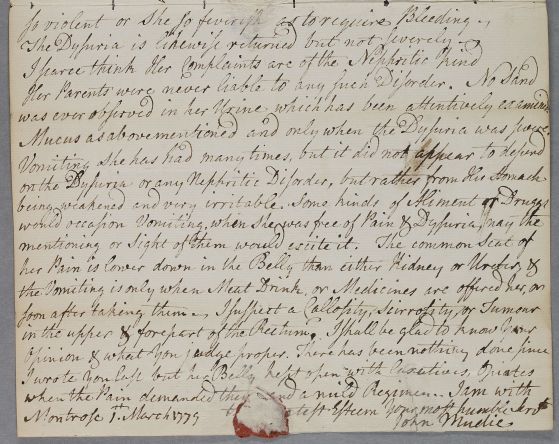 so violent or She so feverish as to require Bleeding.
The Dysuria is likewise returned but not severely.
I scarce think Her Complaints are of the Nephritic kind
Her Parents were never liable to any such Disorder. No Sand
was ever observed in her Urine, which has been attentively examined
Mucus as abovementioned and only when the Dysuria was severe
Vomiting she has had many times, but it did not appear to depend
on the Dysuria or any Nephritic Disorder, but rather from Her Stomach
being weakened and very irritable. Some kinds of Aliment or Druggs
would occasion Vomiting, when she was free of Pain & Dysuria, nay the
mentioning or sight of them would excite it. The common Seat of
her Pain is lower down in the Belly than either Kidney or Ureter, &
the Vomiting is only when Meat Drink, or Medicines are offered her, or
soon after taking them. I suspect a Callosity, Scirrosity, or Tumour
in the upper & forepart of the Rectum. I shall be glad to know Your
Opinion & what You judge proper. There has been nothing done since
I wrote You last but her Belly kept open with Laxatives, Opiates
when the Pain demanded them and a mild Regimen. I am with
Montrose 1st March 1779 the greatest Esteem Your most humble Servt
John Mudie